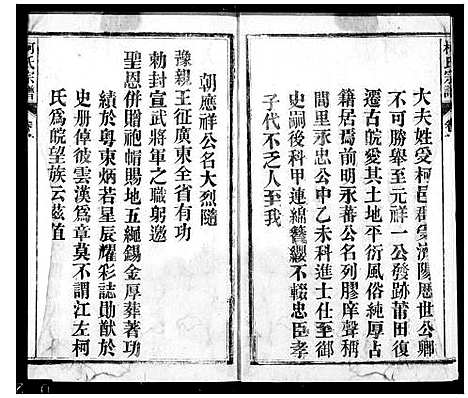 大夫姓爰柯邑郡蒙濟陽歷世公卿
不可勝舉至元祥一公發跡莆田復
遷古皖愛其土地平衍風俗純厚占
籍居焉前明永蕃公名列膠庠聲稱
閭里永忠公中乙未科進士仕至御
史嗣後科甲連綿簪纓不輟忠臣孝
子代不乏人至我
朝應祥公名大烈隨
豫親王征廣東全省有功
勅封宣武將軍之職躬邀
聖恩併賜袍帽賜地五繩錫金厚葬著功
績於粵東炳若星辰耀彩誌勛猷於
史册倬彼雲漢為章莫不謂江左柯
氏為皖望族云茲值
柯氏宗譜
柯氏宗譜